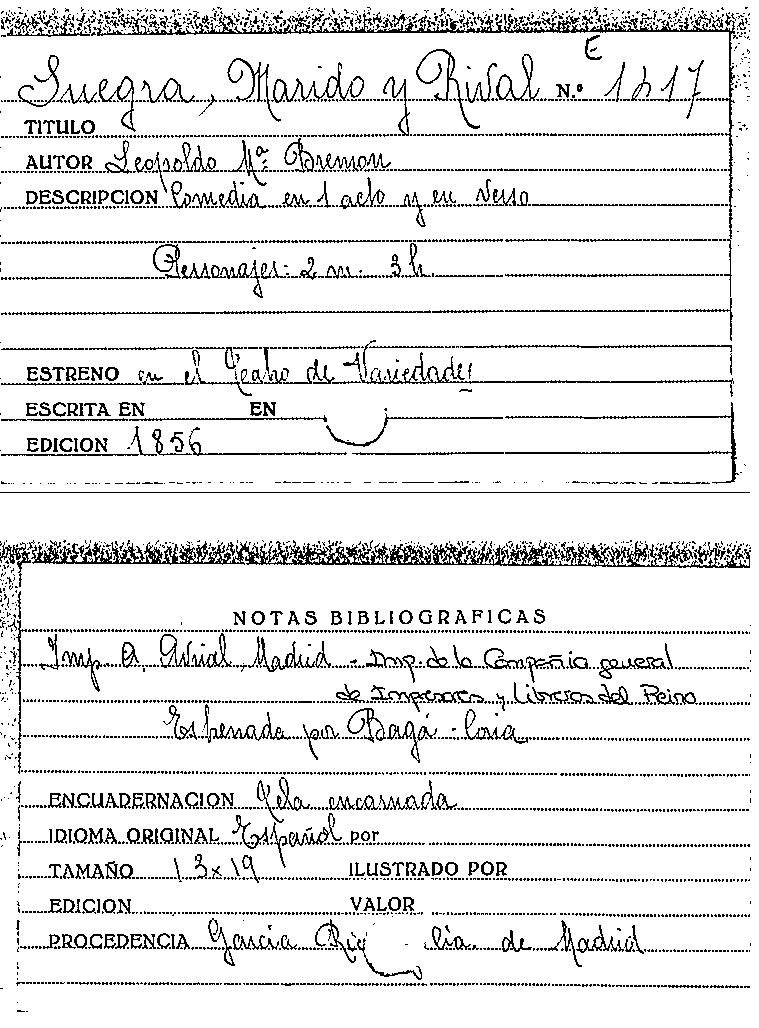 E
Suegra, Marido y Rival N.º 1217
TITULO
AUTOR Leopoldo Mª Bremon
DESCRIPCION Comedia en 1 acto y en verso
Personajes: 2 m. 3 h.
ESTRENO en el Teatro de Variedades
ESCRITA EN EN
EDICION 1856
NOTAS BIBLIOGRAFICAS
Imp. A. Avrial, Madrid - Imp. de la Compañía general
de Impresores y Libreros del Reino
Estrenada por Bagá -
ENCUADERNACION Tela encarnada
IDIOMA ORIGINAL Español por
TAMAÑO 13x19 ILUSTRADO POR
EDICION VALOR
PROCEDENCIA García Rico - Cia. de Madrid